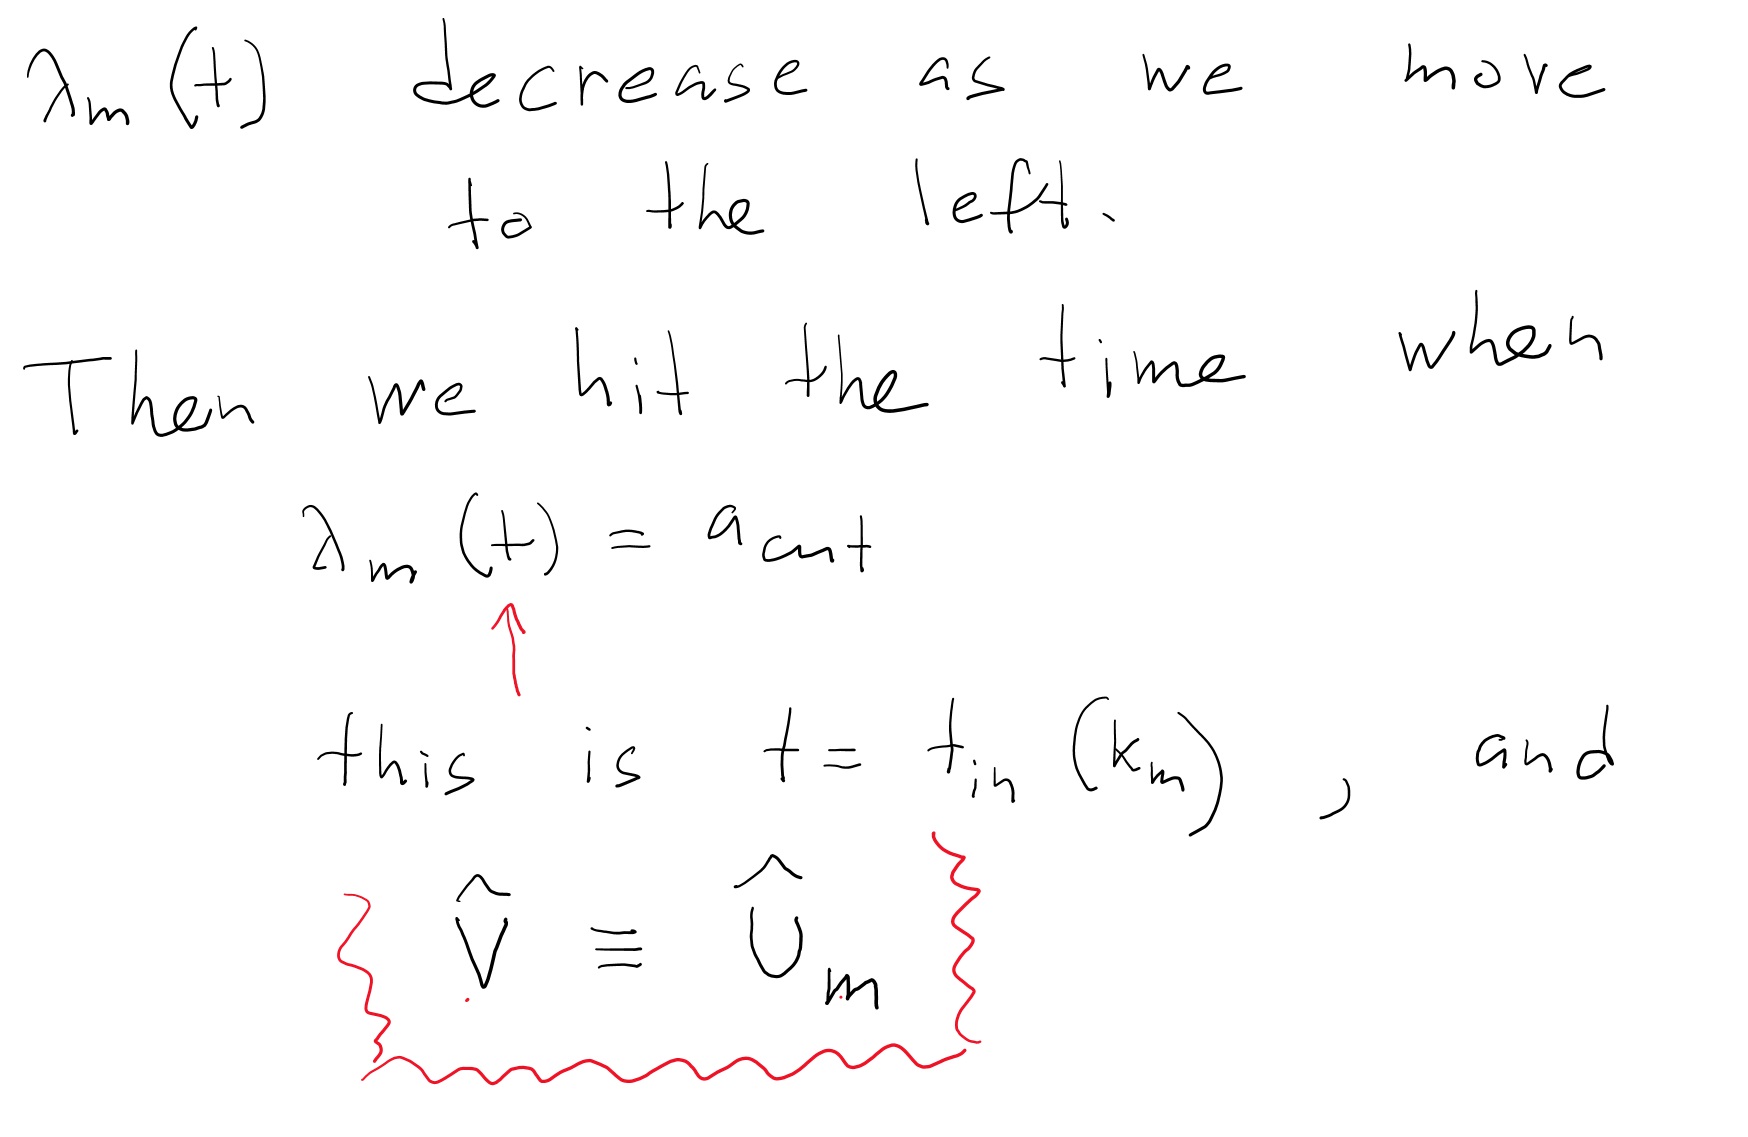 λₘ(t) decrease as we move
to the left.
Then we hit the time when
λₘ(t) = a_cut
this is t = t_in (kₘ), and
V̂ ≡ Ûₘ